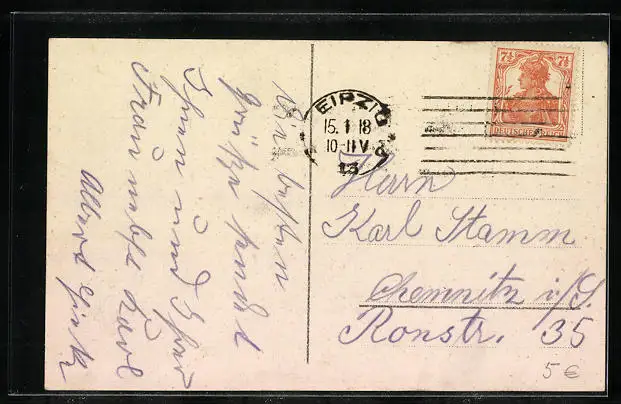 Die besten
Grüße sendet
Ihnen und Ihrer
Frau nebst Karl
Albert
LEIPZIG
15.1.18
10-11V
13
7½ 7½
DEUTSCHES REICH
Herrn
Karl Stamm
Chemnitz i/S.
Ronstr. 35
5 €